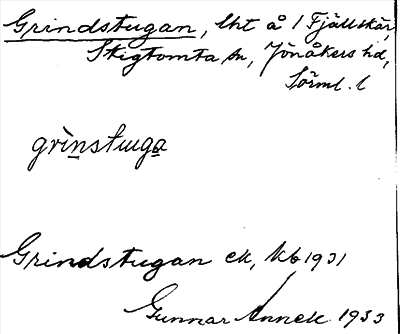 Grindstugan, lht å 1 Fjällskär,
Stigtomta sn, Jönåkers hd,
Sörml. l
grìnstuga
Grindstugan ek, kb 1931
Gunnar Annek 1933